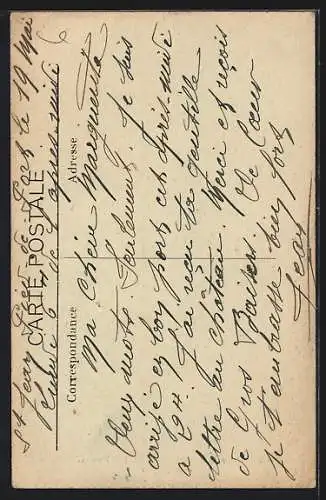 St Jean Pied de Port le 19 Mai
6 h de l'après-midi
CARTE POSTALE
Correspondance
Adresse
Ma chère Marguerite
Deux mots seulement. Je suis
arrivé en bon port cet après-midi
a 2 H. J'ai reçu ta gentille
lettre au château. Merci et reçois
de Gros Baisers de coeur
je t'embrasse bien fort
Jean